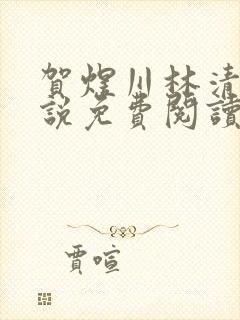 賀煜川林清
說免費閱讀
賈喧